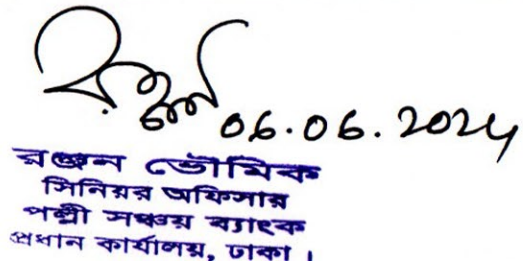 ০৬.০৬.২০২৪
রঞ্জন ভৌমিক
সিনিয়র অফিসার
পল্লী সঞ্চয় ব্যাংক
প্রধান কার্যালয়, ঢাকা।